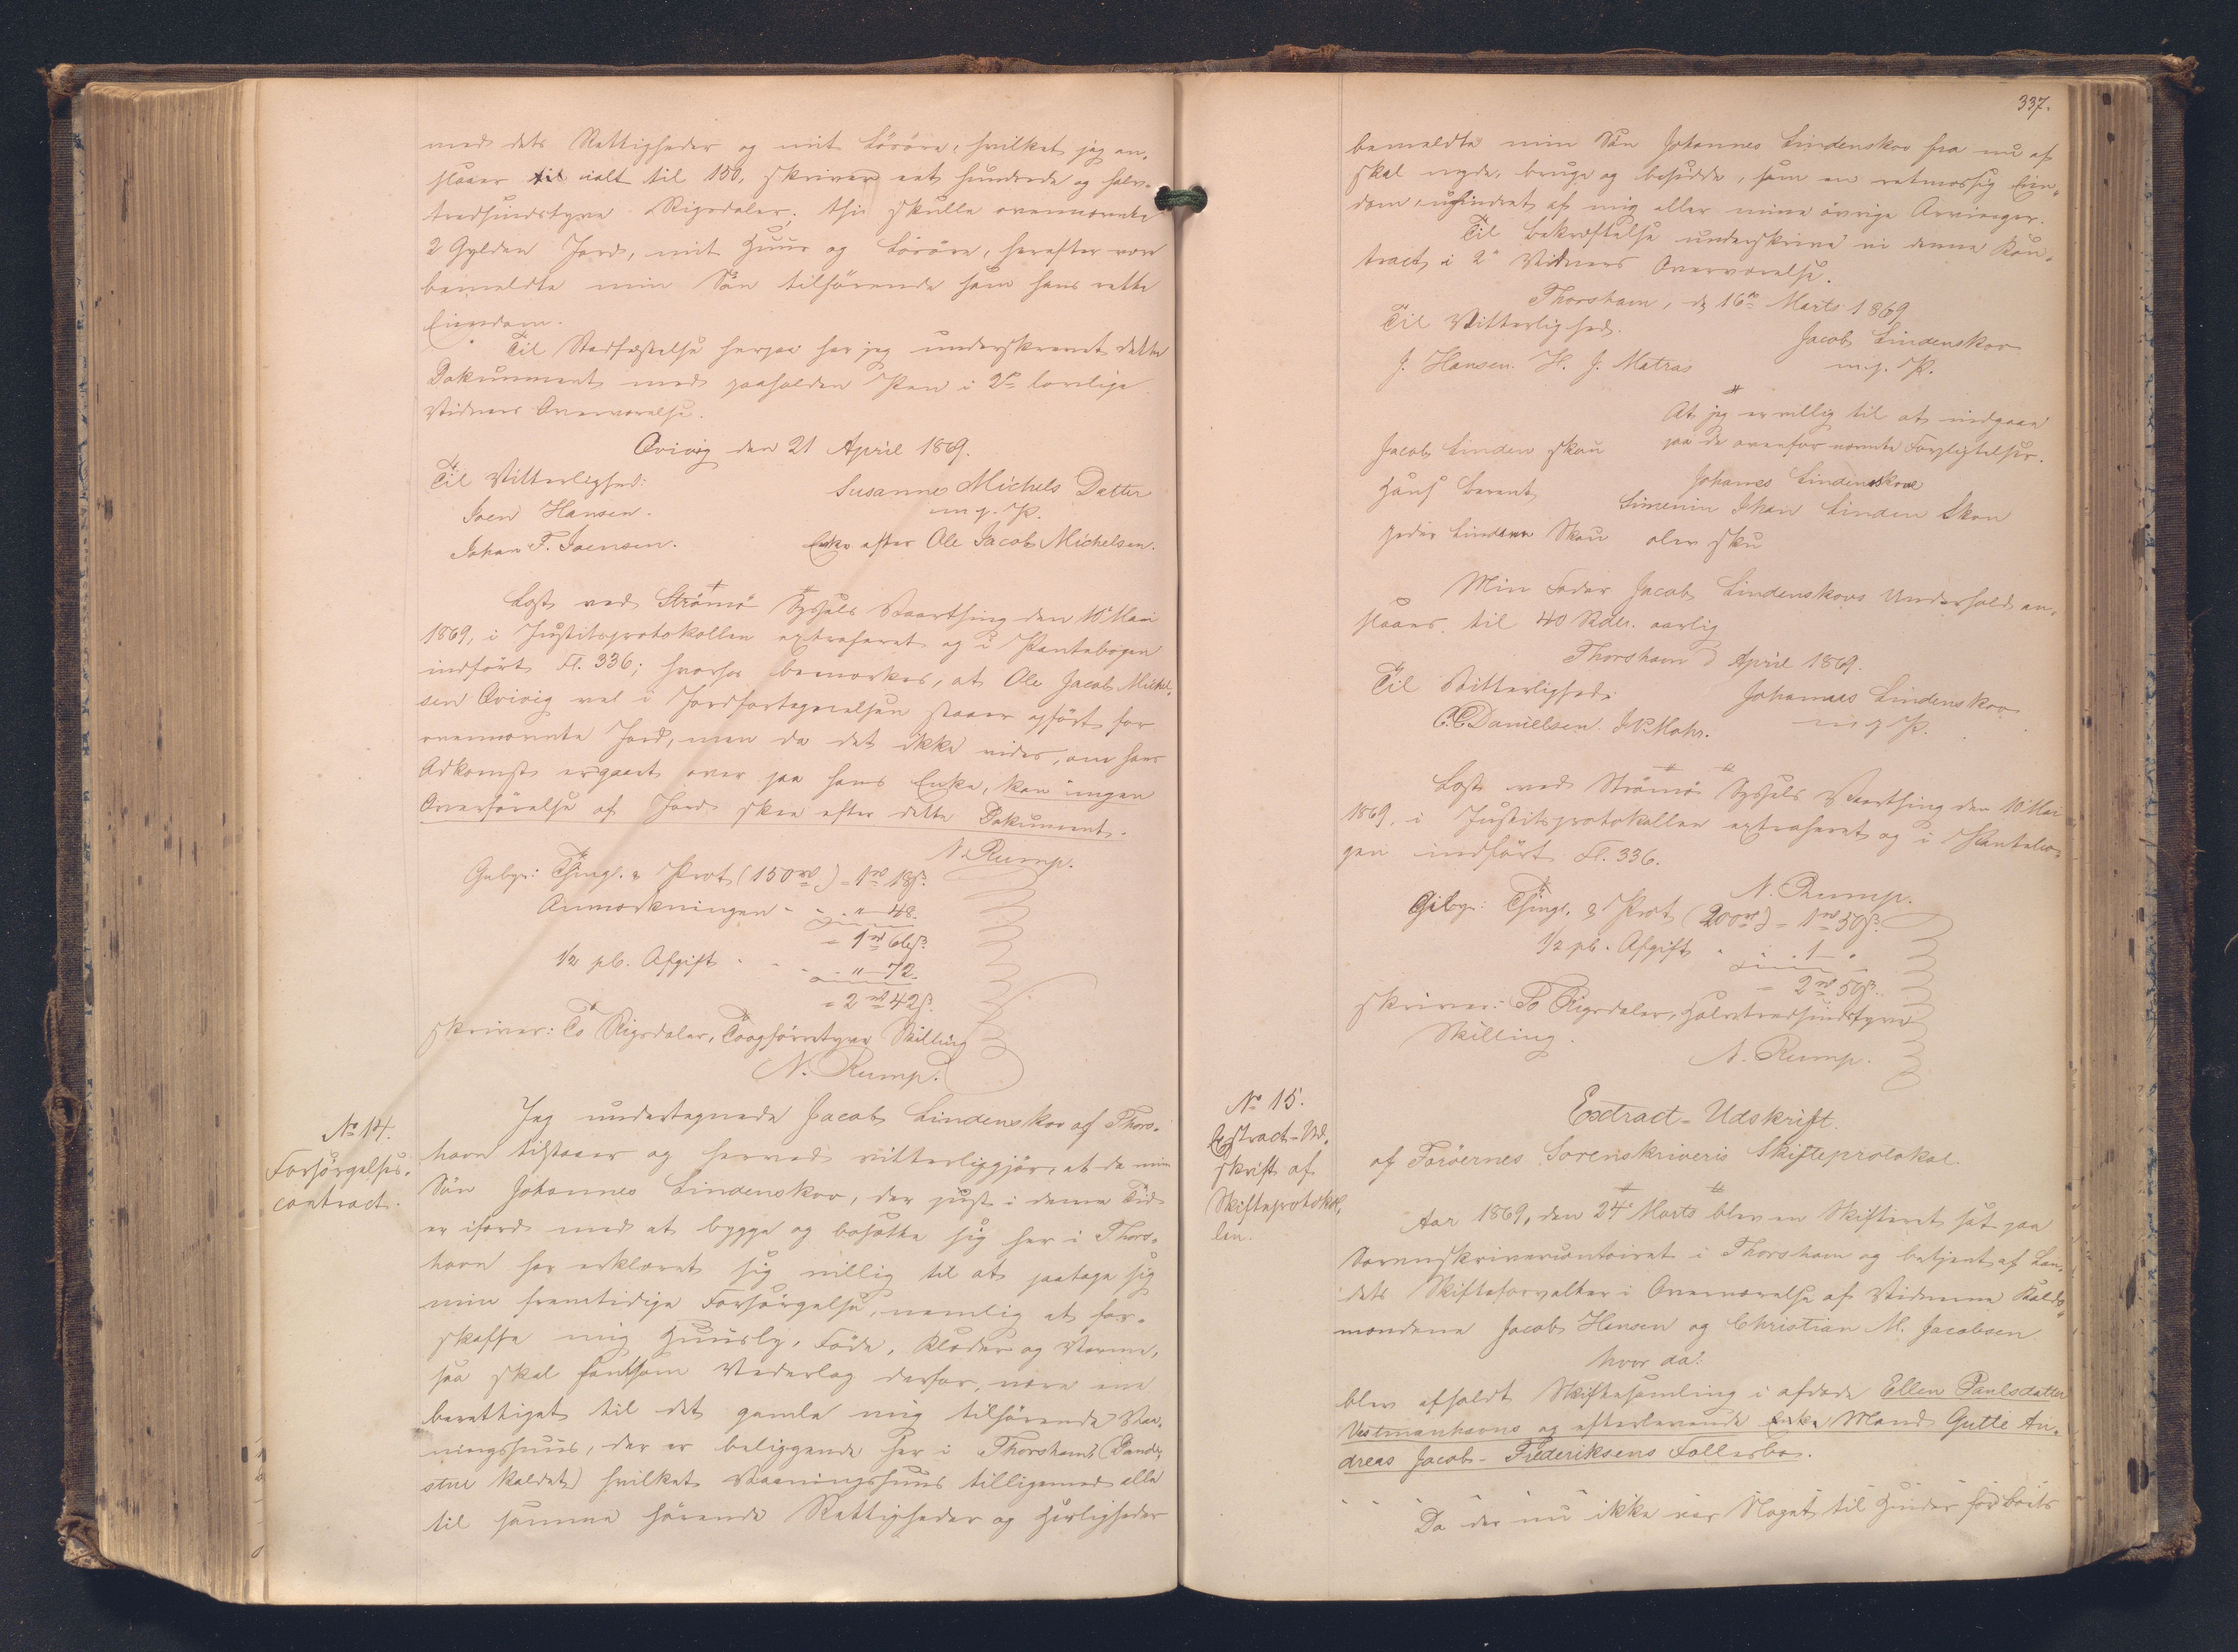 med dets Rettigheder og mit Løsøre, hvilket jeg an-
slaaer til ialt til 150, skriver eet hundrede og halv-
tredsindstyve Rigsdaler; thi skulle ovennævnte
2 Gylden Jord, mit Huus og Løsøre, herefter være
bemeldte min Søn tilhørende som hans rette
Eiendom.
Til Stadfæstelse herpaa har jeg underskrevet dette
Dokument med paaholden Pen i 2de lovlige
Vidners Overværelse.
Qvivig den 21 April 1869.
Til Vitterlighed:
Susanne Michels Datter
Joen Hansen.
m. p. P.
Johan F. Joensen.
Enke efter Ole Jacob Michelsen.
Læst ved Strömö Syssels Vaarthing den 10 Mai
1869, i Justitsprotokollen extraheret og i Pantebogen
indført Fl. 336; hvorhos bemærkes, at Ole Jacob Michel-
sen Qvivig vel i Jordfortegnelsen staaer opført for
ovennævnte Jord, men da det ikke vides, om hans
Adkomst er gaaet over paa hans Enke, kan ingen
Overførelse af Jord skee efter dette Dokument.
N. Rump.
Gebyr: Thingl. & Prot (150 rd) = 1 rd 18 s.
Anmærkningen - - - " 48.
= 1 rd 66 s.
1/2 pC. Afgift - - - " 72.
= 2 rd 42 s.
skriver: To Rigsdaler, Toogførretyve Skilling
N. Rump.
No 14.
Forsörgelses-
contract.
Jeg undertegnede Jacob Lindenskov af Thors-
havn tilstaaer og herved vitterliggjør, at da min
Søn Johannes Lindenskov, der just i denne Tid
er ifærd med at bygge og bosætte sig her i Thors-
havn har erklæret sig villig til at paatage sig
min fremtidige Forsørgelse, nemlig at for-
skaffe mig Huusly, Føde, Klæder og Varme,
saa skal han som Vederlag derfor, være ene
berettiget til det gamle mig tilhørende Vaa-
ningshuus, der er beliggende her i Thorshavn (
stue kaldet) hvilket Vaaningshuus tilligemed alle
til samme hørende Rettigheder og Herligheder
337.
bemeldte min Søn Johannes Lindenskov fra nu af
skal nyde, bruge og besidde, som en retmæssig Eien-
dom, uhindret af mig eller mine øvrige Arvinger.
Til Bekræftelse underskrive vi denne Kon-
tract i 2 Vidners Overværelse.
Thorshavn, d. 16de Marts 1869
Til Vitterlighed.
Jacob Lindenskov
J. Hansen. H. J. Matras
m. p. P.
At jeg er villig til at indgaae
paa de ovenfor nævnte Forpligtelser.
Jacob Linden skou
Johanes Lindenskove
Hans Berent
Simenin Johan Linden Skou
Peder Linden Skou olen sku
Min Fader Jacob Lindenskovs Underhold an-
slaaes til 40 Rdlr. aarlig
Thorshavn d April 1869.
Til Vitterlighed:
Johannes Lindenskov
C. C. Danielsen. J. P. Mohr.
m. p. P.
Læst ved Strömö Syssels Vaarthing den 10 Mai
1869, i Justitsprotokollen extraheret og i Pantebo-
gen indført Fl. 336.
N. Rump.
Gebyr: Thingl. & Prot (200 rd) = 1 rd 50 s.
1/2 pC. Afgift " . 1 - "
= 2 rd 50 s.
skriver: To Rigsdaler, Halvtredsindstyve
Skilling.
N. Rump.
No 15.
Extract-Ud-
skrift af
Skifteprotokol-
len.
Extract-Udskrift.
af Færøernes Sorenskriveris Skifteprotokol.
Aar 1869, den 24 Marts blev en Skifteret sat paa
Sorenskrivercontoiret i Thorshavn og betjent af Lan-
dets Skifteforvalter i Overværelse af Vidnerne Kalds-
mændene Jacob Hansen og Christian M. Jacobsen
hvor da:
blev afholdt Skiftesamling i afdøde Ellen Paulsdatter
Vestmanhavns og efterlevende Enke Mand Gutte An-
dreas Jacob Frederiksens Fællesbo.
- - - - - -
Da der nu ikke var Noget til Hinder for Boets